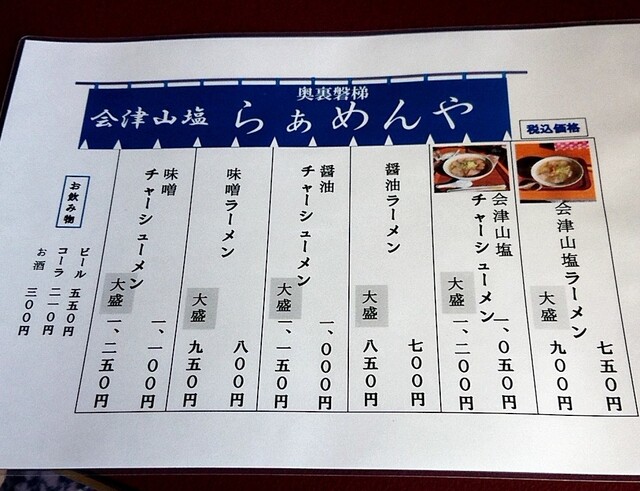 奥裏磐梯
会津山塩 らぁめんや
税込価格
会津山塩ラーメン 七五〇円
大盛 九〇〇円
会津山塩チャーシューメン 一、〇五〇円
大盛 一、二〇〇円
醤油ラーメン 七〇〇円
大盛 八五〇円
醤油チャーシューメン 一、〇〇〇円
大盛 一、一五〇円
味噌ラーメン 八〇〇円
大盛 九五〇円
味噌チャーシューメン 一、一〇〇円
大盛 一、二五〇円
お飲み物
ビール 五五〇円
コーラ 二一〇円
お酒 三〇〇円